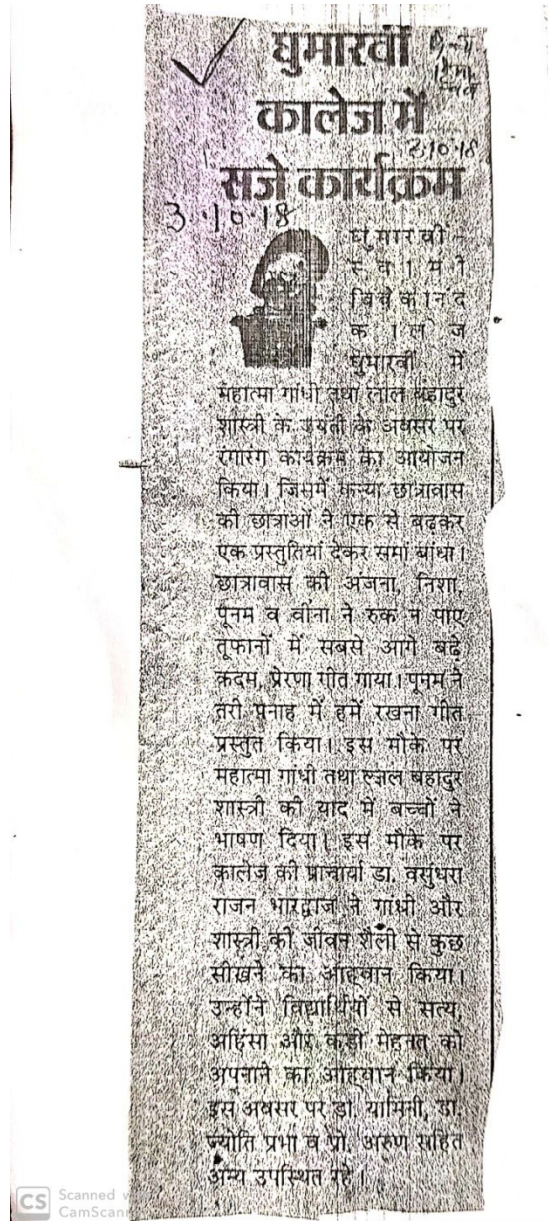 घुमारवीं
कालेज में
2.10.18
सजे कार्यक्रम
3.10.18
घुमारवीं -
स्वामी
विवेकानंद
कालेज
घुमारवीं में
महात्मा गांधी तथा लाल बहादुर
शास्त्री के जयंती के अवसर पर
रंगारंग कार्यक्रम का आयोजन
किया। जिसमें कन्या छात्रावास
की छात्राओं ने एक से बढ़कर
एक प्रस्तुतियां देकर समां बांधा।
छात्रावास की अंजना, निशा,
पूनम व वीना ने रुक न पाए
तूफानों में सबसे आगे बढ़े
कदम, प्रेरणा गीत गाया। पूनम ने
तेरी पनाह में हमें रखना गीत
प्रस्तुत किया। इस मौके पर
महात्मा गांधी तथा लाल बहादुर
शास्त्री की याद में बच्चों ने
भाषण दिया। इस मौके पर
कालेज की प्राचार्या डा. वसुंधरा
राजन भारद्वाज ने गांधी और
शास्त्री की जीवन शैली से कुछ
सीखने का आह्वान किया।
उन्होंने विद्यार्थियों से सत्य,
अहिंसा और कड़ी मेहनत को
अपनाने का आह्वान किया।
इस अवसर पर डा. यामिनी, डा.
ज्योति प्रभा व प्रो. अरुण सहित
अन्य उपस्थित रहे।
CS Scanned
CamScan